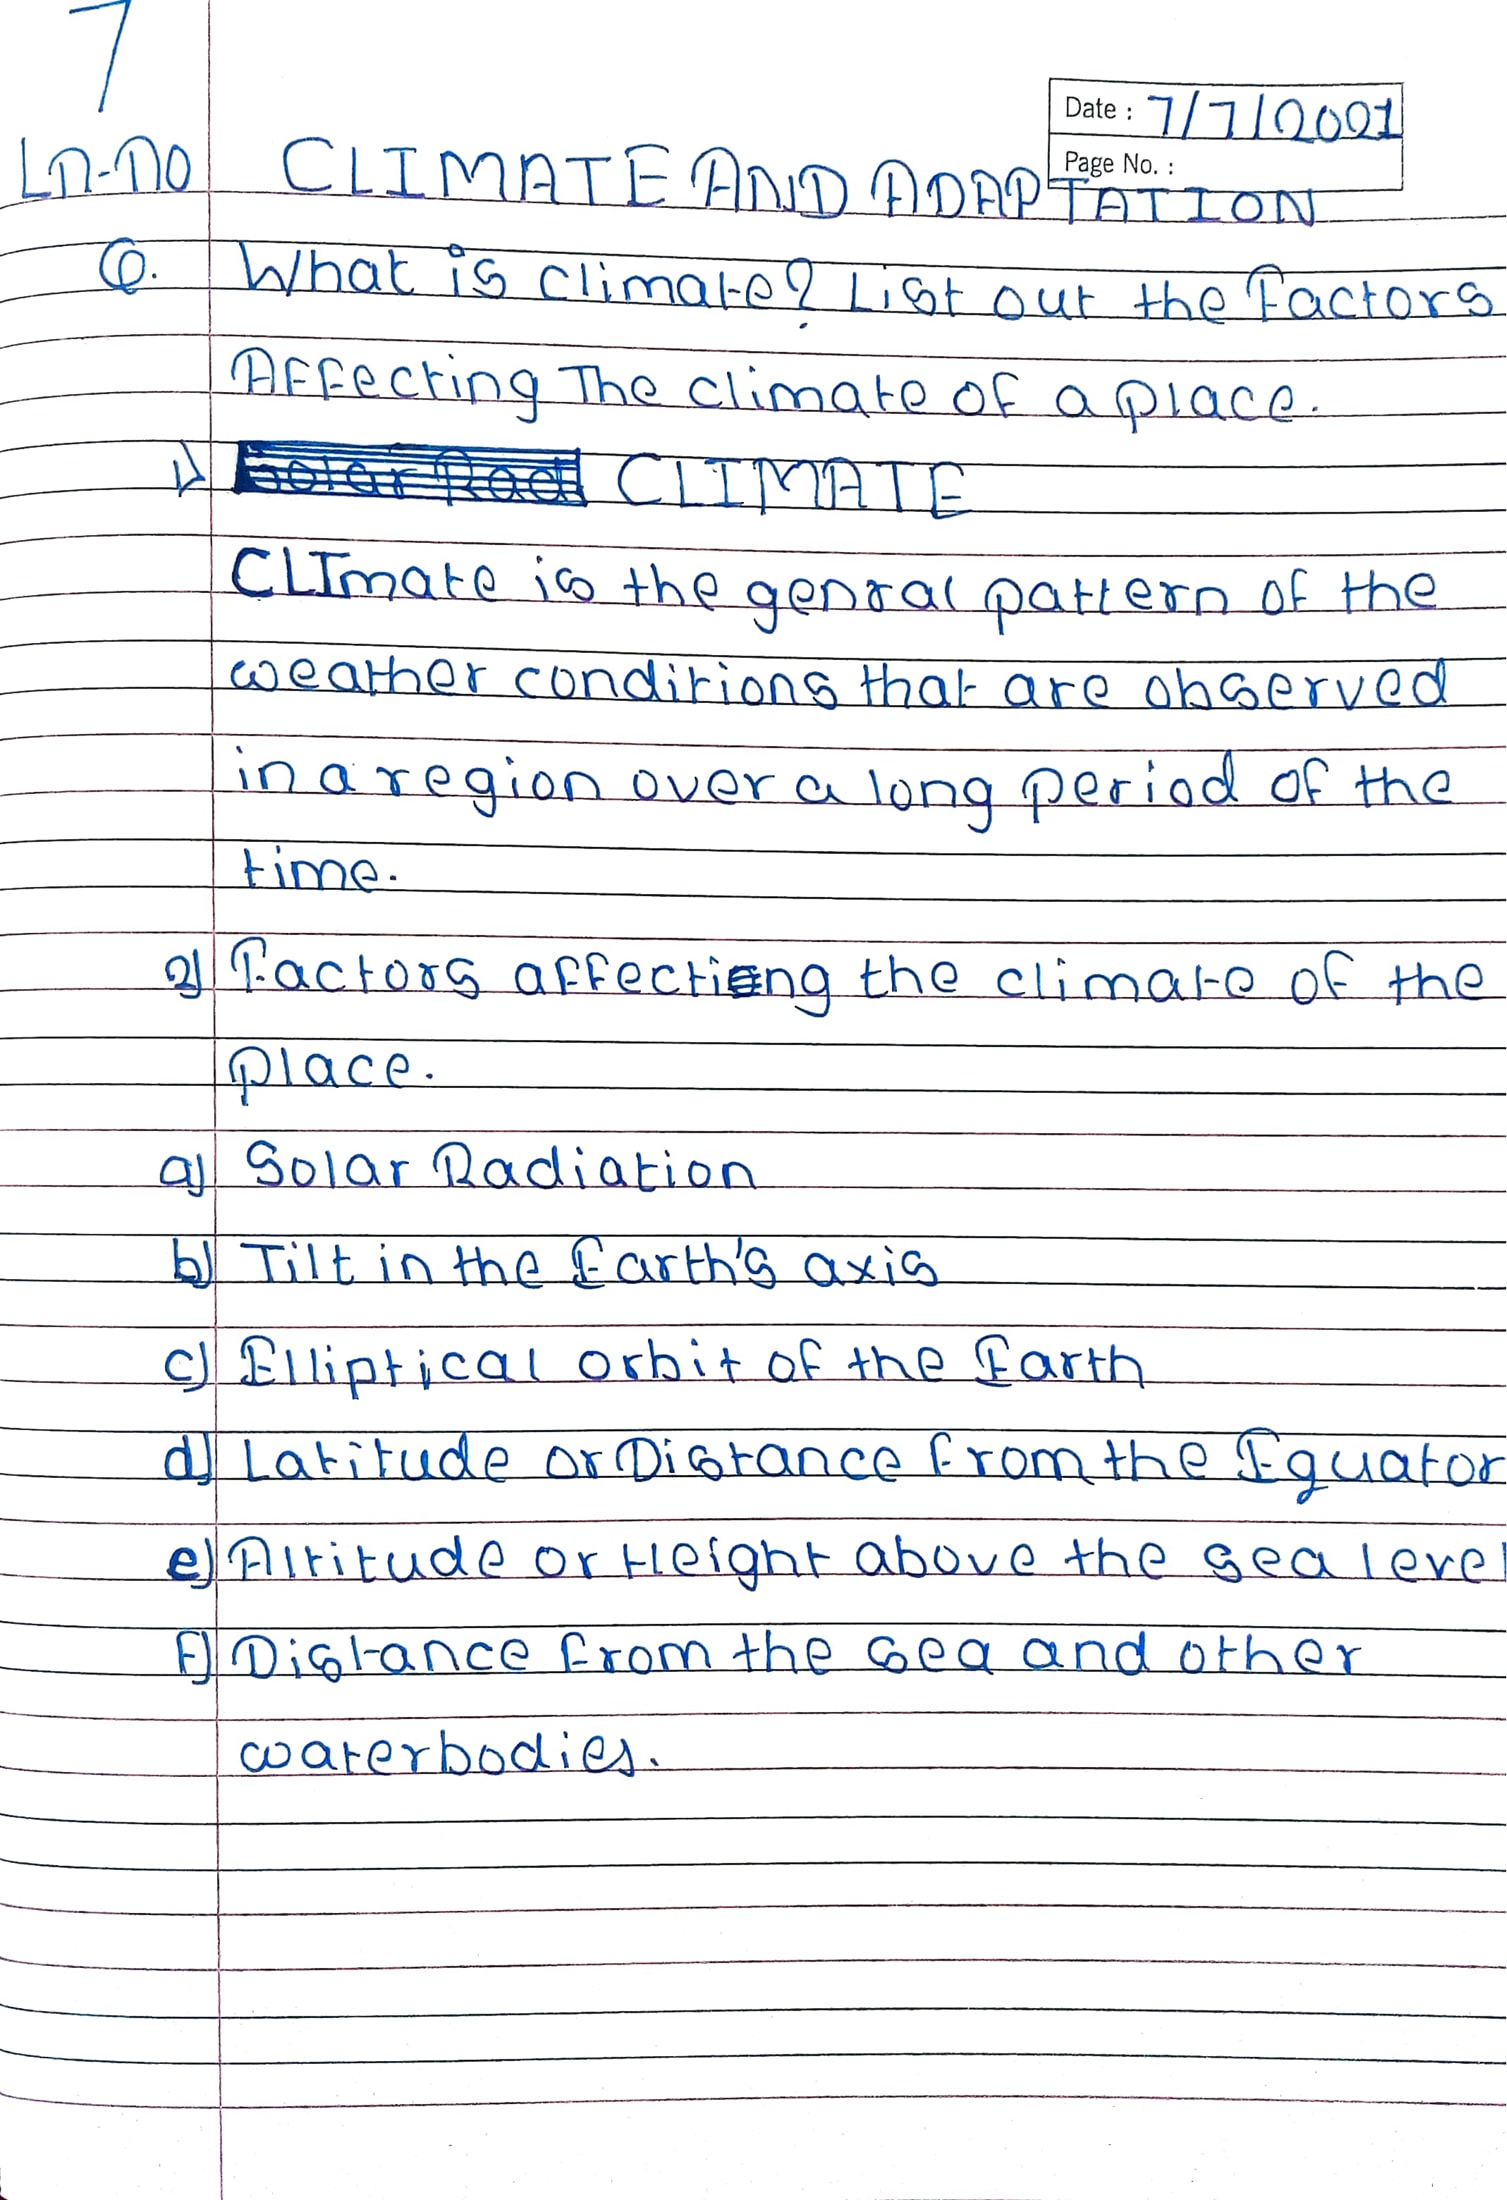 7
Date : 7/7/2021
Page No. :
LN-NO CLIMATE AND ADAPTATION
Q. What is climate? List out the Factors
Affecting The climate of a place.
1) CLIMATE
CLImate is the genral pattern of the
weather conditions that are observed
in a region over a long period of the
time.
2) Factors affecting the climate of the
place.
a) Solar Radiation
b) Tilt in the Earth's axis
c) Elliptical orbit of the Earth
d) Latitude or Distance from the Equator
e) Altitude or Height above the sea level
F) Distance from the sea and other
waterbodies.